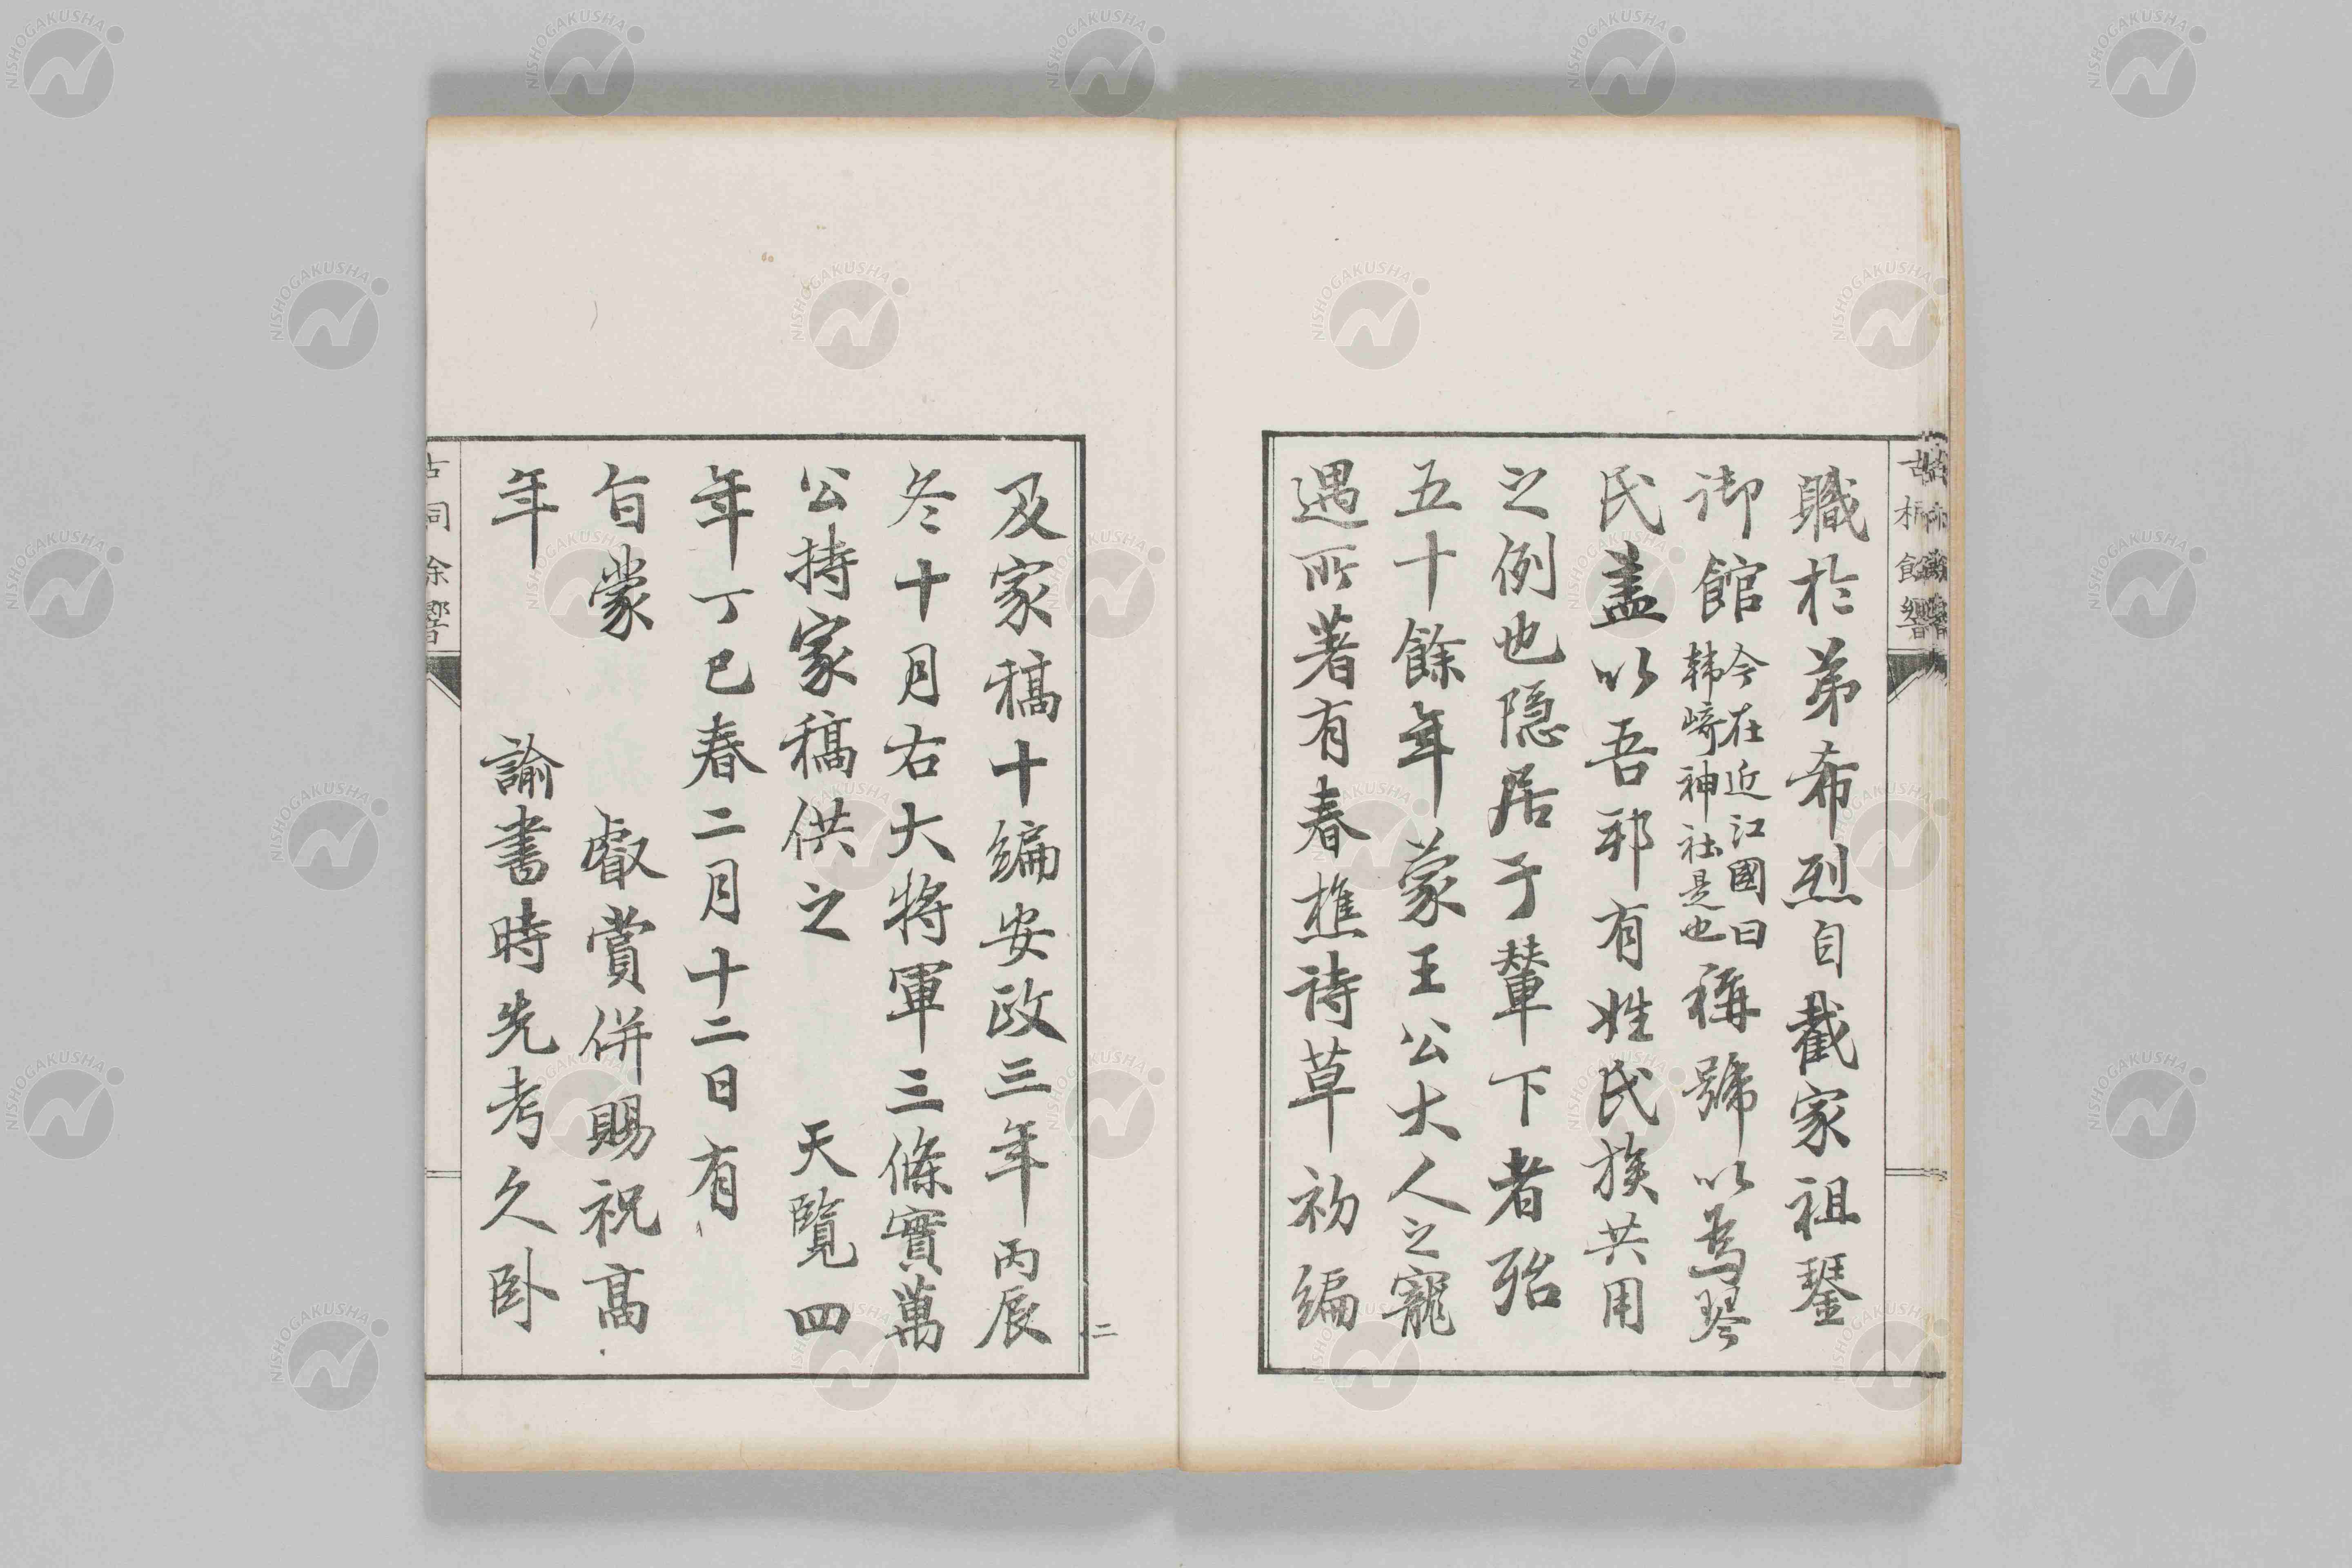 職於弟希烈自截家祖鑋
御館今在近江國曰韩﨑神社是也稱號以為琴
氏盖以吾邦有姓氏族共用
之例也隐居于輦下者殆
五十餘年蒙王公大人之寵
遇所著有春樵詩草初編
及家稿十編安政三年丙辰
冬十月右大将軍三條實萬
公持家稿供之　天覧四
年丁巳春二月十二日有
旨蒙　叡賞併賜祝髙
年　諭書時先考久卧
二
NISHOGAKUSHA